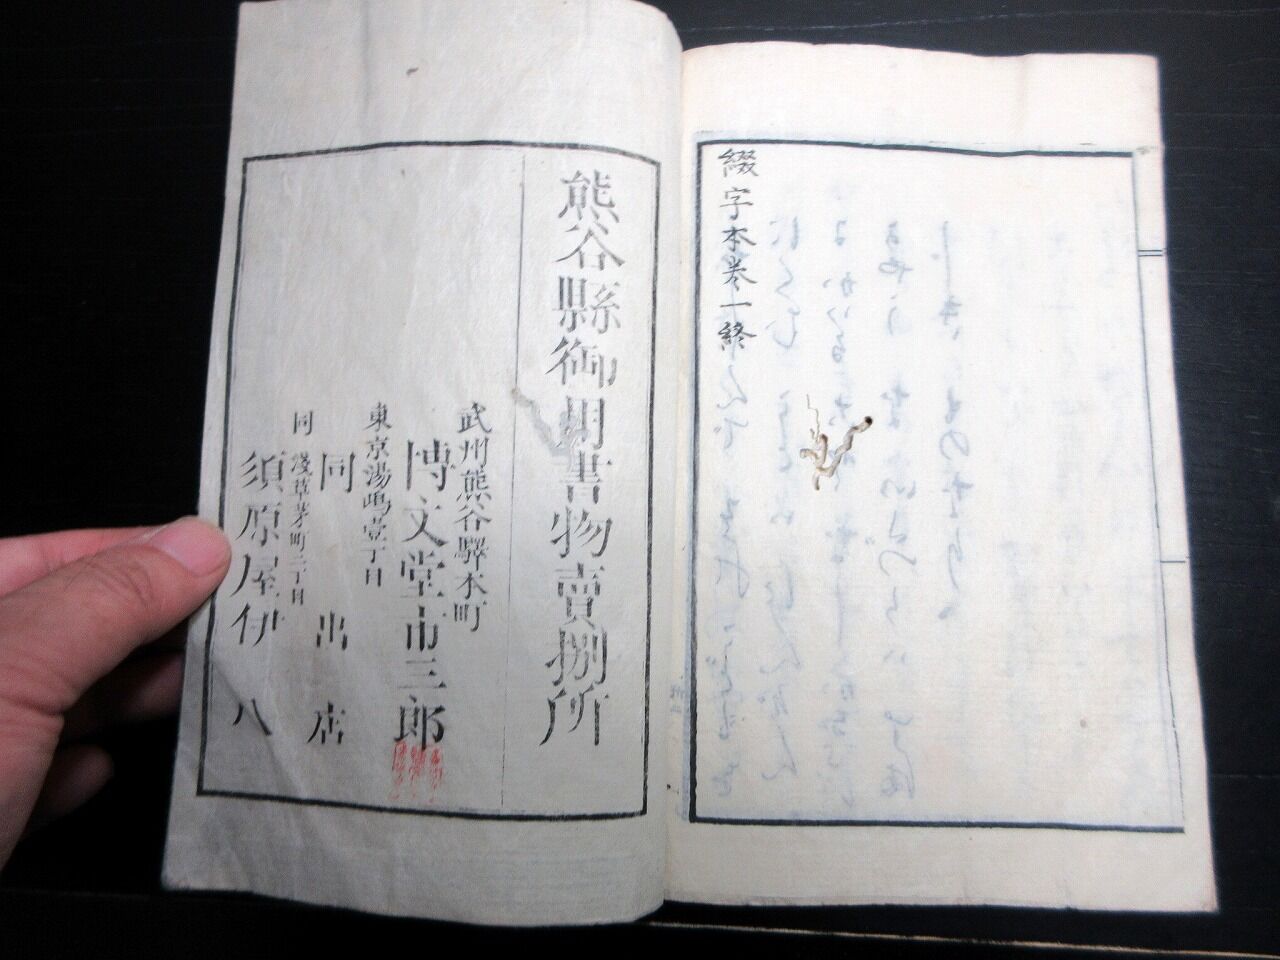 綴字本巻一終
熊谷縣御用書物賣捌所
武州熊谷驛本町
博文堂市三郎
東京湯嶋壹丁目
同出店
同淺草茅町二丁目
須原屋伊八